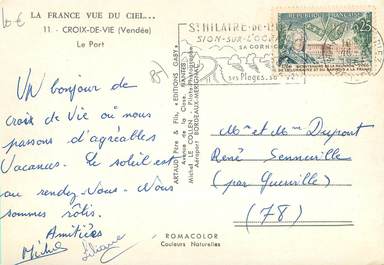 LA FRANCE VUE DU CIEL...
11 - CROIX-DE-VIE (Vendée)
Le Port
10€
85
Un bonjour de
Croix de Vie où nous
passons d'agréables
Vacances. Le soleil est
au rendez-Vous - Nous
sommes rôtis.
Amitiés
Michel Liliane
ARTAUD Père & Fils, "EDITIONS GABY"
Avenue de la Close, NANTES
Michel LE COLLEN, Pilote-Photographe
Aéroport BORDEAUX-MERIGNAC
ROMACOLOR
Couleurs Naturelles
St HILAIRE-DE-
SION-SUR-L'OCEAN
SA CORNICHE
ses Plages, sa
0,25
Mr et Mme Dupont
René Senneville
(par Guerville)
(78)